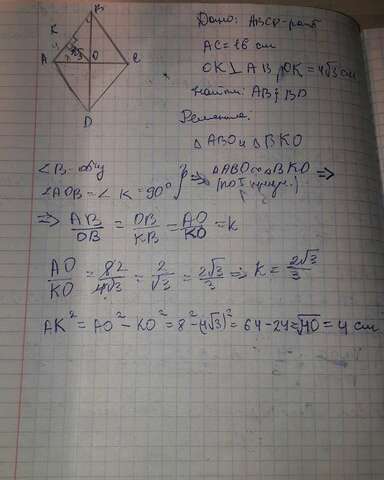 B
K
4√3
A O C
D
Дано: ABCD-ромб
AC=16 см
OK⊥AB, OK=4√3 см
Найти: AB; BD
Решение.
△ABO и △BKO
∠B-общ
∠AOB=∠K=90° } ⇒ △ABO∾△BKO ⇒
(по I призн.)
⇒ AB/OB = OB/KB = AO/KO = k
AO/KO = 82/4√3 = 2/√3 = 2√3/3 ⇒ k = 2√3/3
AK² = AO² - KO² = 8² - (4√3)² = 64-24=√40 = 4 см